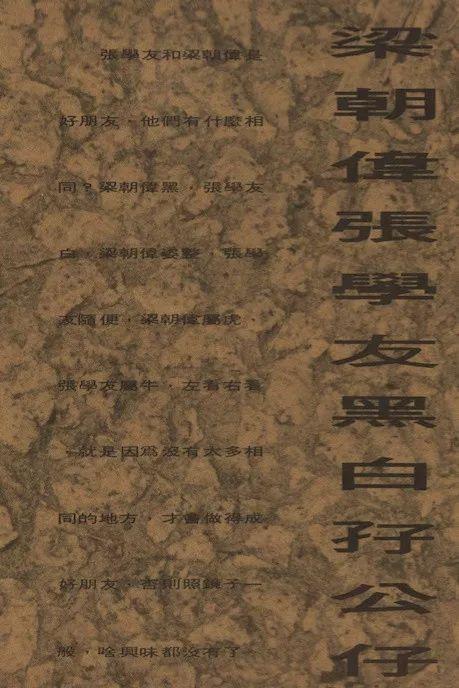 梁朝偉張學友黑白孖公仔
張學友和梁朝偉是
好朋友,他們有什麼相
同?梁朝偉黑,張學友
白,梁朝偉姿整,張學
友隨便,梁朝偉屬虎,
張學友屬牛,左看右看
,就是因為沒有太多相
同的地方,才會做得成
好朋友,否則照鏡子一
般,啥興味都沒有了。